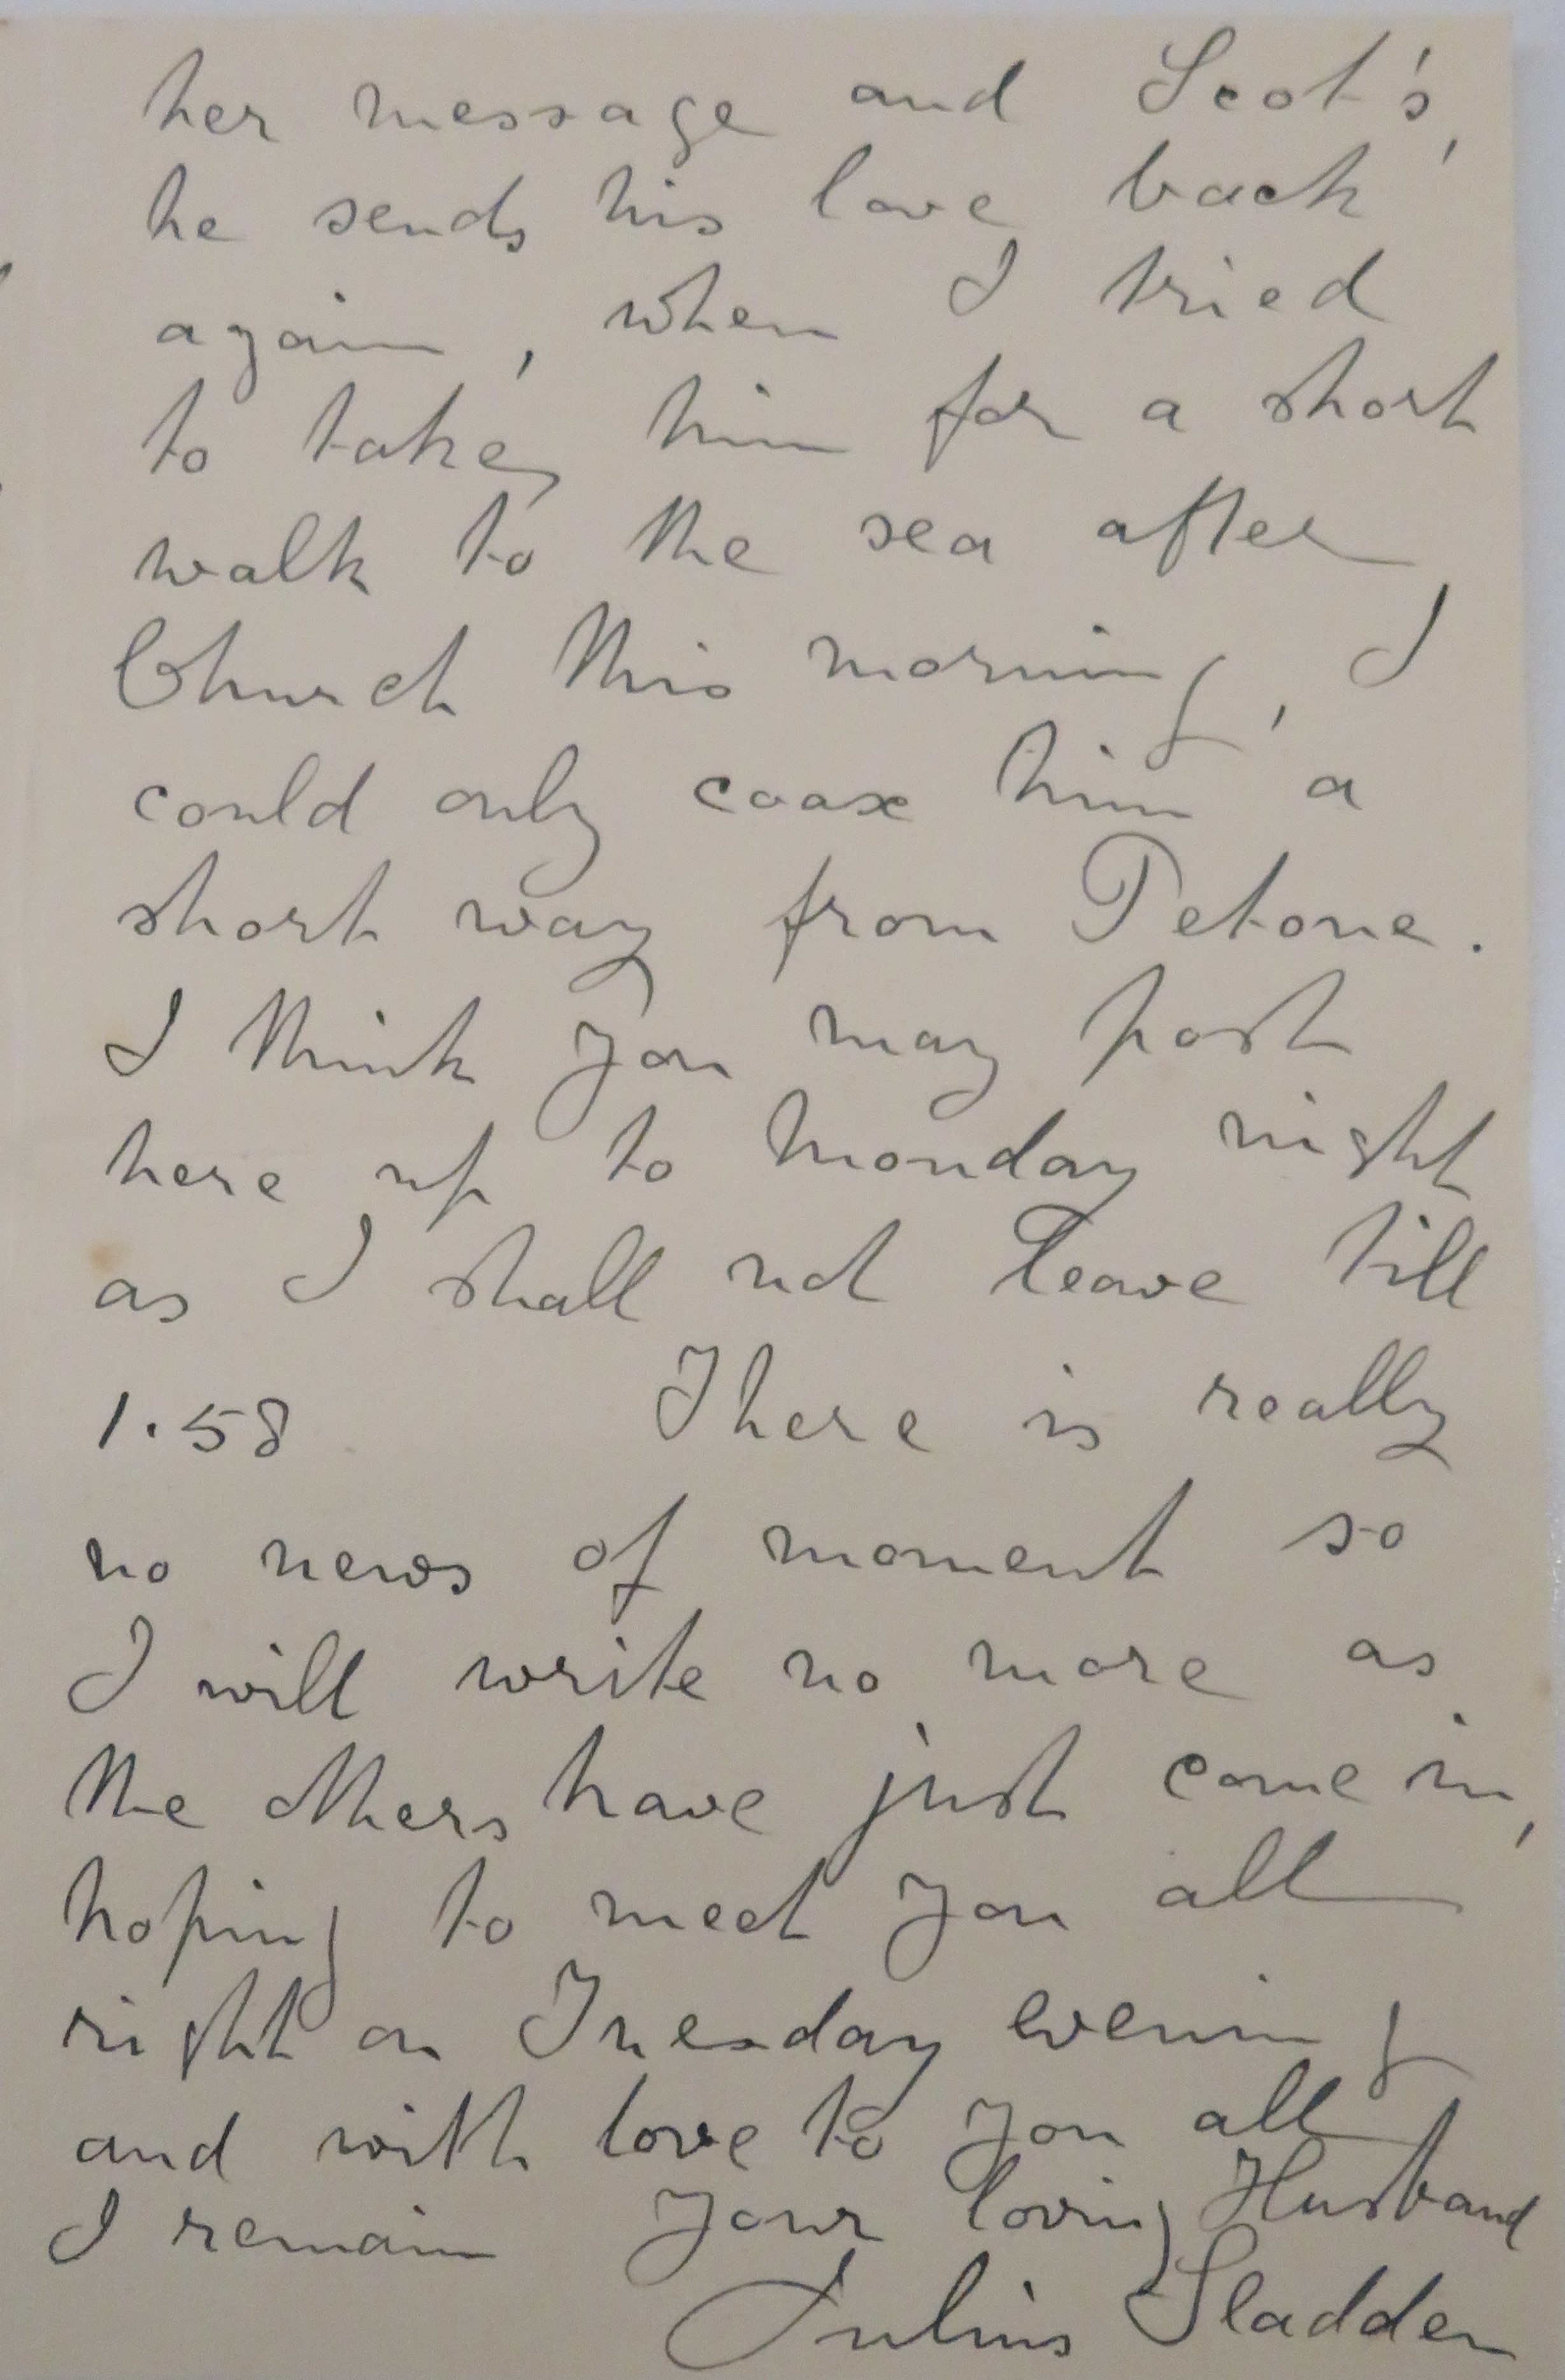 her message and Scot's,
he sends his love back
again, when I tried
to take him for a short
walk to the sea after
Church this morning, I
could only coax him a
short way from Petone.
I think you may post
here up to Monday night
as I shall not leave till
1.58 There is really
no news of moment so
I will write no more as
the others have just come in,
hoping to meet you all
right on Tuesday evening
and with love to you all
I remain your loving Husband
Julius Sladden